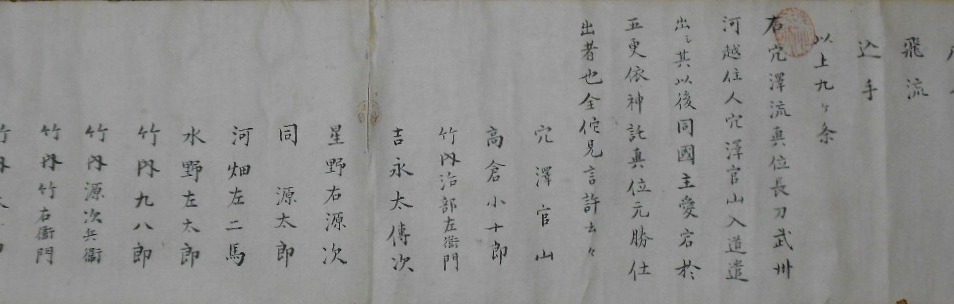 飛流
込手
以上九ケ条
右穴澤流真位長刀武州
河越住人穴澤官山入道遣
出之其以後同國主愛宕於
五更依神託真位元勝仕
出者也全他見言許云々
穴澤官山
高倉小十郎
竹内治部左衞門
吉永太傳次
星野右源次
同源太郎
河畑左二馬
水野左太郎
竹内九八郎
竹内源次兵衞
竹内竹右衞門